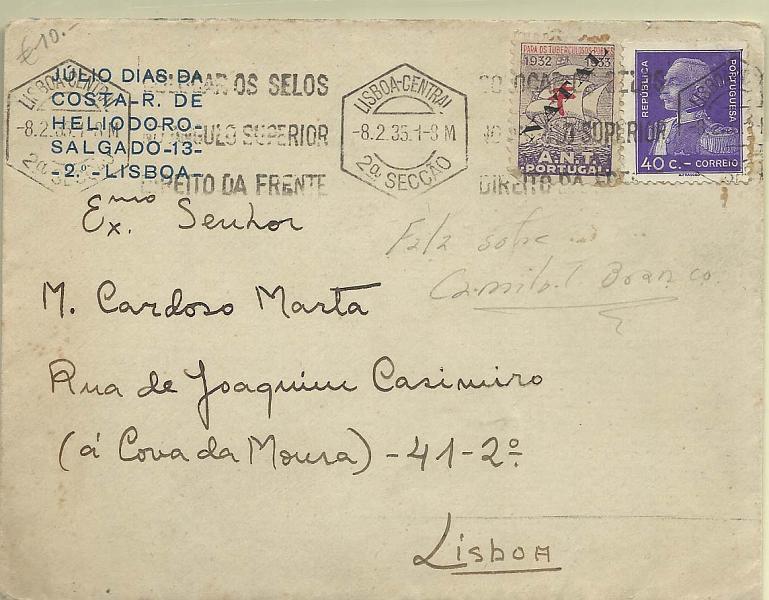 €10.-
JÚLIO DIAS DA
COSTA-R. DE
HELIODORO-
SALGADO-13-
-2º-LISBOA-
LISBOA-CENTRAL
-8.2.35.1-8 M
2ª SECÇÃO
COLOCAR OS SELOS
NO ANGULO SUPERIOR
DIREITO DA FRENTE
LISBOA-CENTRAL
-8.2.35.1-8 M
2ª SECÇÃO
COLOCAR OS SELOS
NO ANGULO SUPERIOR
DIREITO DA
PARA OS TUBERCULOSOS POBRES
1932 1933
NATAL
A.N.T.
PORTUGAL
REPÚBLICA
PORTUGUESA
40 c. - CORREIO
Exmo Senhor
Fala sobre
Camilo C. Branco.
M. Cardoso Marta
Rua de Joaquim Casimiro
(á Cova da Moura) -41-2º
Lisboa